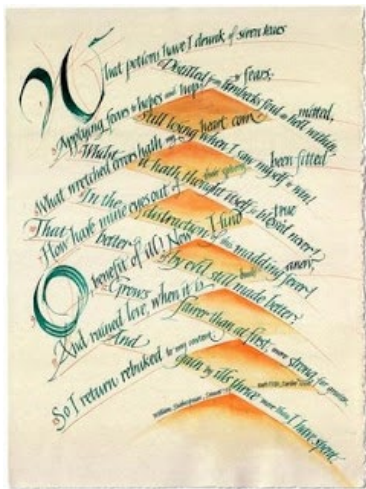 What potions have I drunk of siren tears
Distilled from limbecks foul as hell within,
Applying fears to hopes and hopes to fears,
still losing when I saw myself to win!
What wretched errors hath my heart committed,
Whilst it hath thought itself so blessèd never!
How have mine eyes out of their spheres been fitted
In the distraction of this madding fever!
O benefit of ill! Now I find true
That better is by evil still made better
And ruined love, when it is built anew,
Grows fairer than at first, more strong, far greater.
So I return rebuked to my content,
And gain by ills thrice more than I have spent.
William Shakespeare, Sonnet